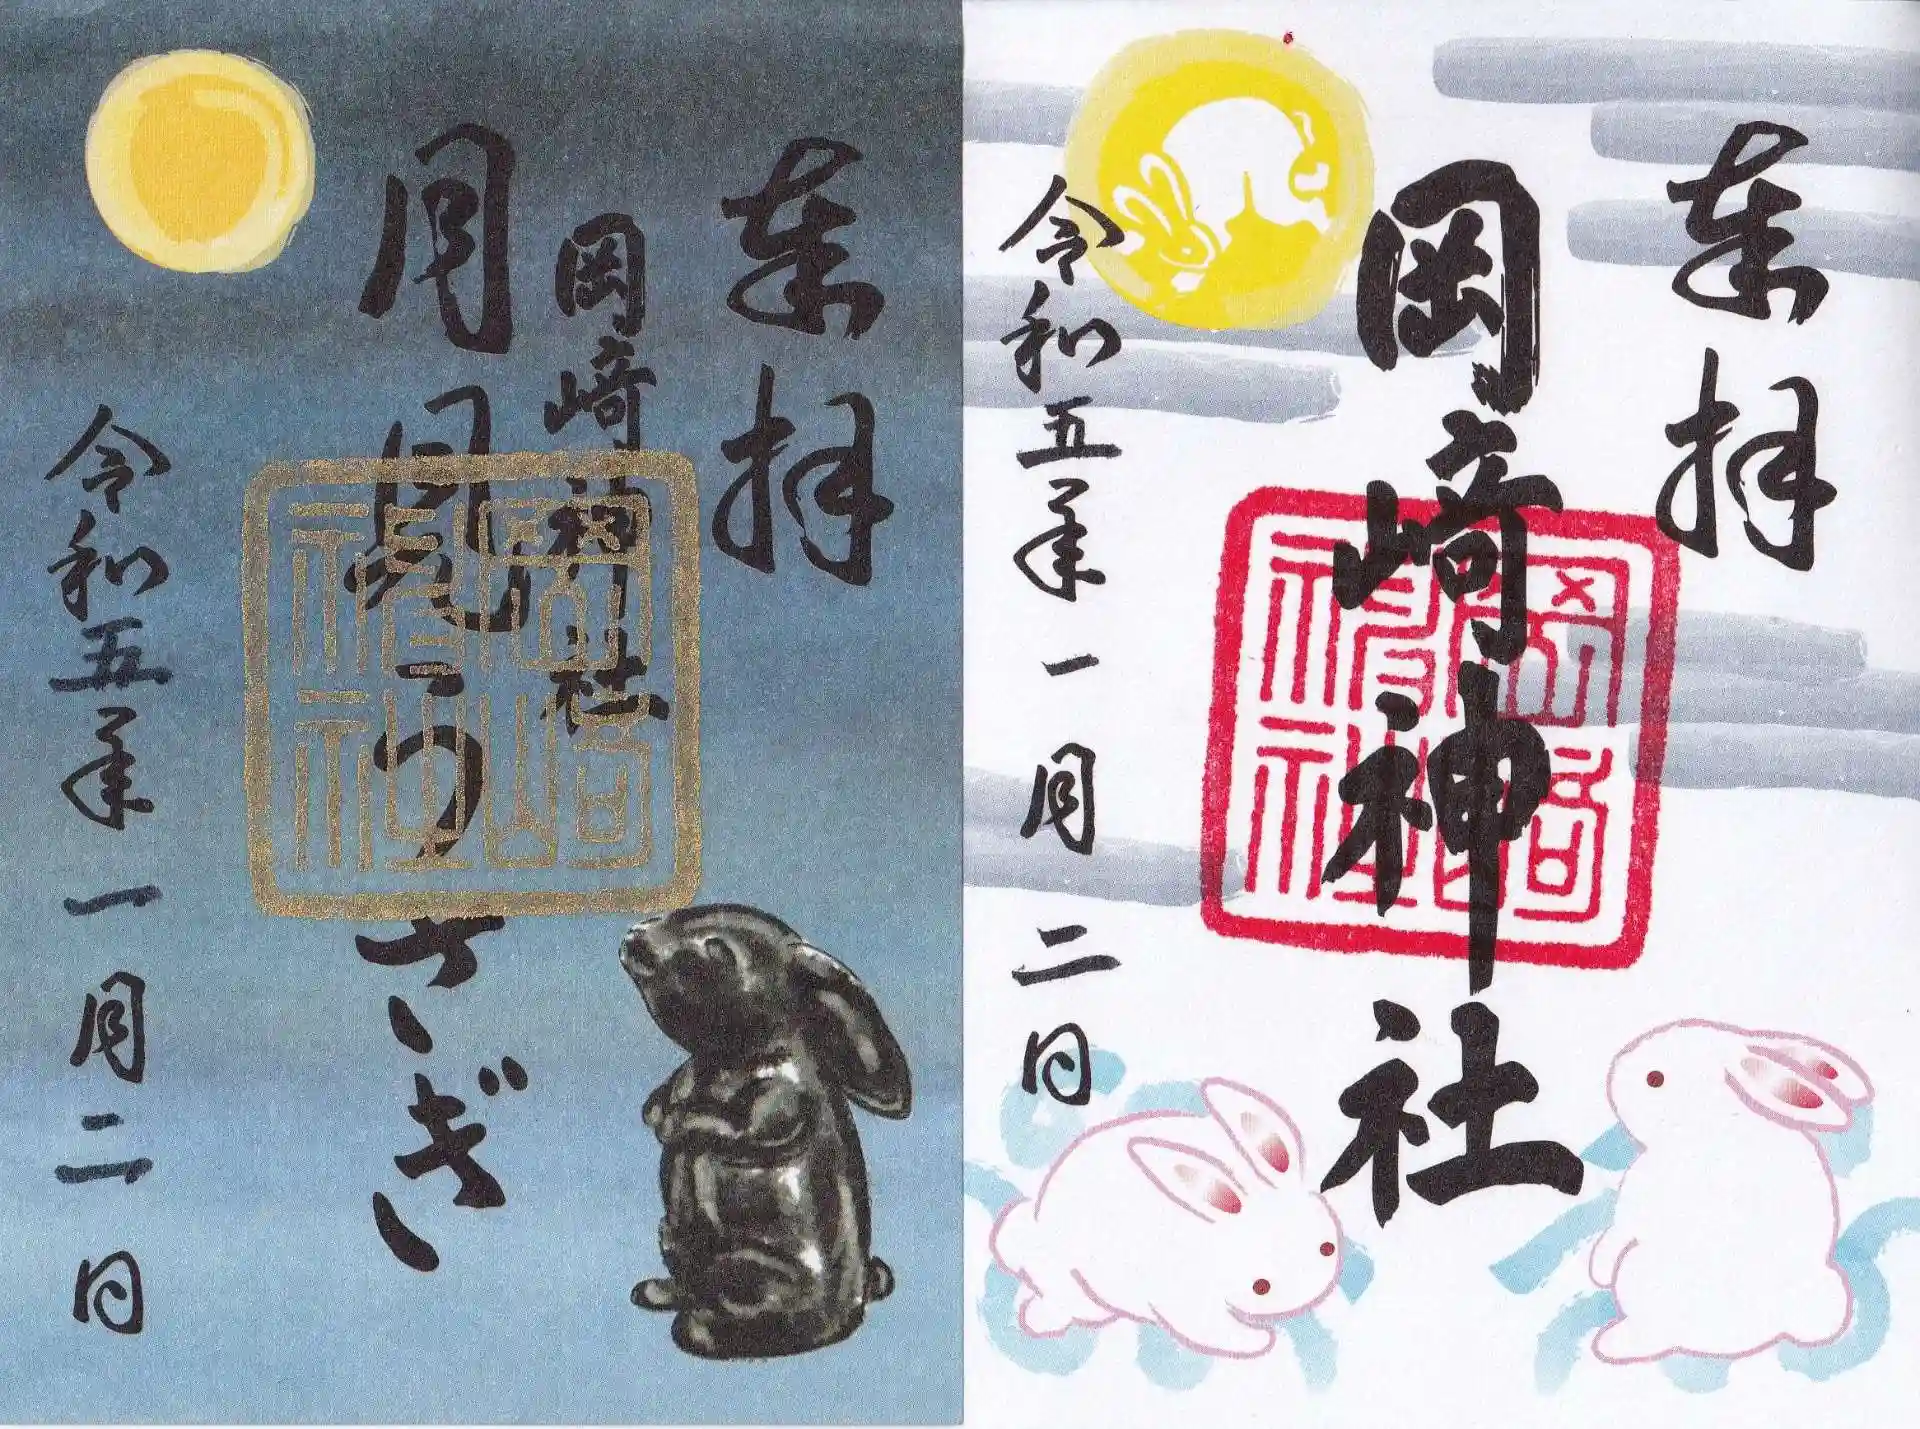 奉拝
岡崎神社
岡崎神社
令和五年一月二日
奉拝
岡崎神社
月見うさぎ
岡崎神社
令和五年一月二日